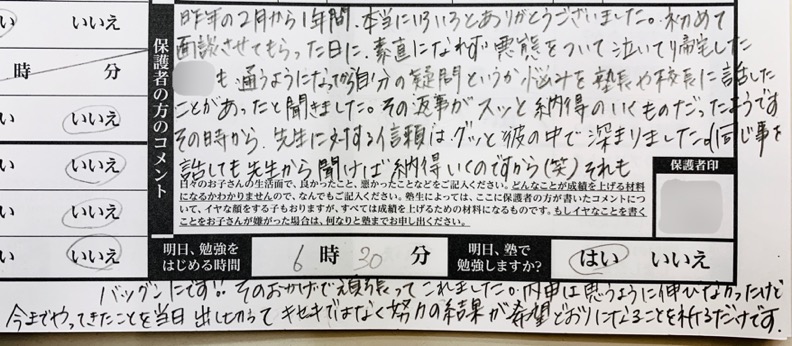 昨年の2月から1年間、本当にいろいろとありがとうございました。初めて
面談させてもらった日に、素直になれず悪態をついて泣いて帰宅した
も通うようになってから自分の疑問というか悩みを塾長や校長に話した
ことがあったと聞きました。その返事がスッと納得のいくものだったようです
その時から、先生に対する信頼はグッと彼の中で深まりました。同じ事を
話しても先生から聞けば納得いくのですから(笑)それも
保護者の方のコメント
い いいえ
時 分
い いいえ
い いいえ
い いいえ
い いいえ
日々のお子さんの生活面で、良かったこと、悪かったことなどをご記入ください。どんなことが成績を上げる材料
になるかわかりませんので、なんでもご記入ください。塾生によっては、ここに保護者の方が書いたコメントにつ
いて、イヤな顔をする子もおりますが、すべては成績を上げるための材料になるものです。もしイヤなことを書く
ことをお子さんが嫌がった場合は、何なりと塾までお申し出ください。
保護者印
明日、勉強を
はじめる時間
6 時 30 分
明日、塾で
勉強しますか?
はい いいえ
バツグンにです!! そのおかげで頑張ってこれました。内申は思うように伸びなかったけど
今までやってきたことを当日出しきってキセキではなく努力の結果が希望どおりになることを祈るだけです。